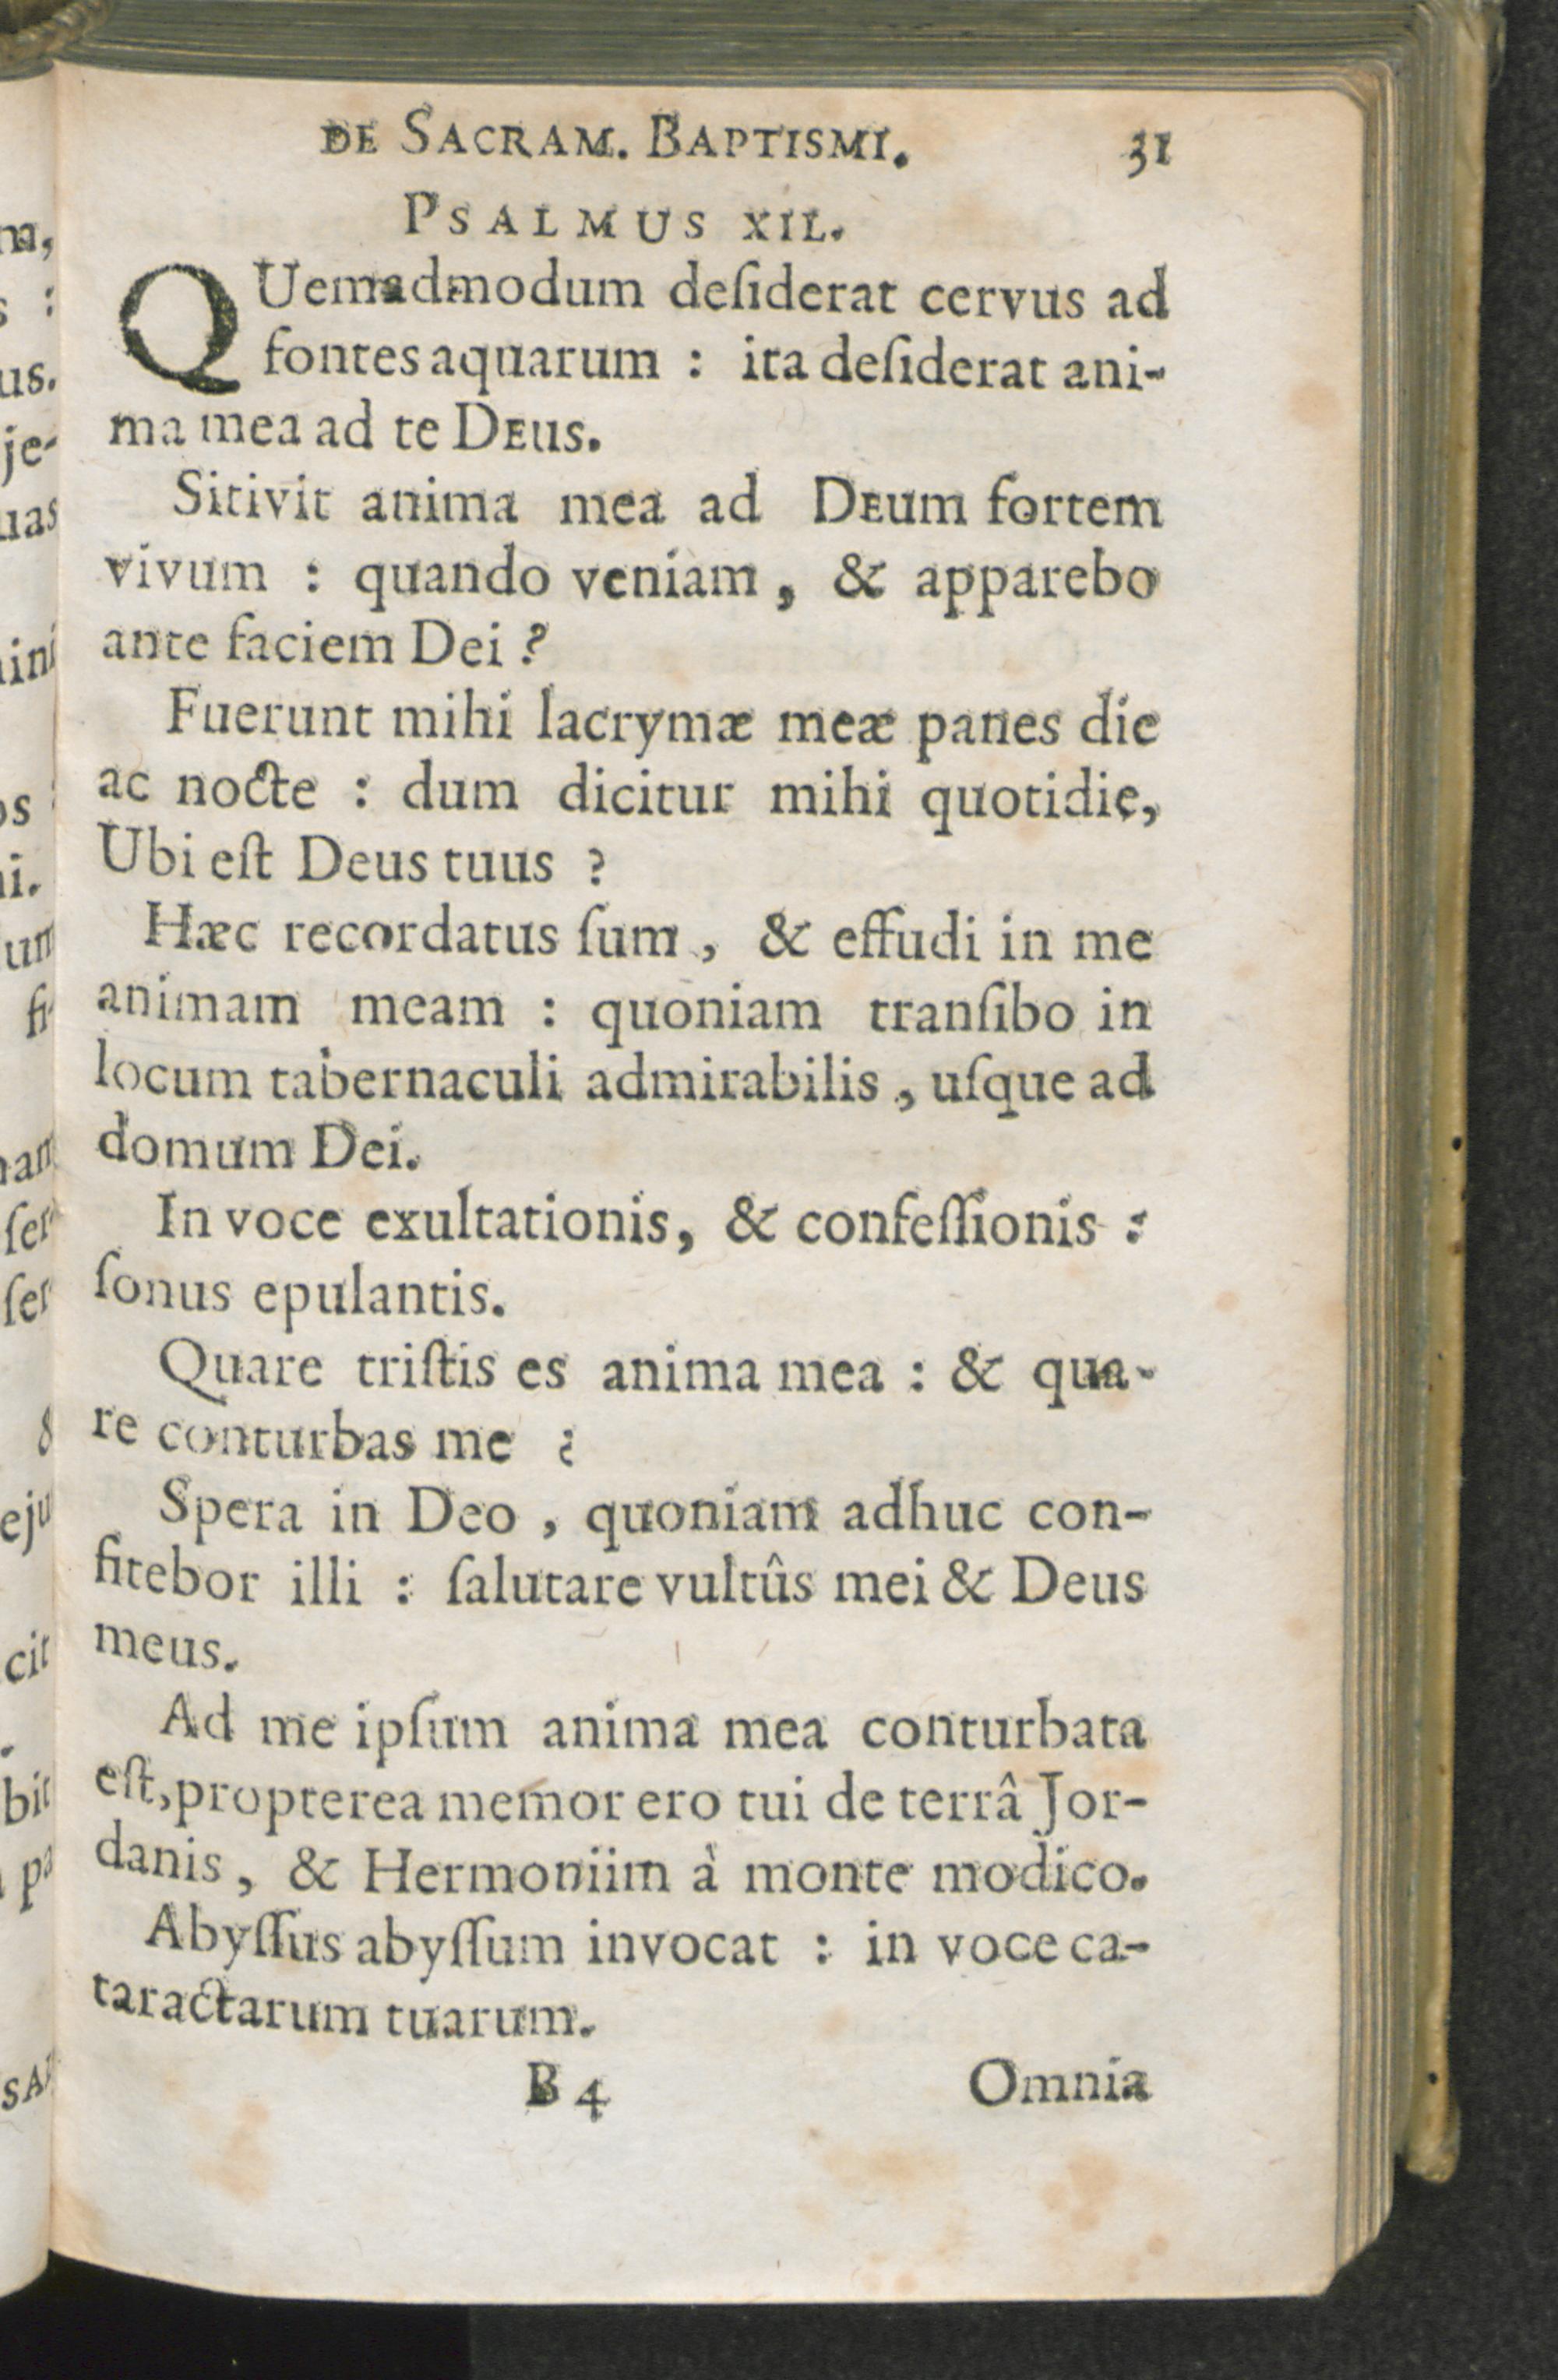 DE SACRAM. BAPTISMI. 31
PSALMUS XIL.
QUemadmodum deſiderat cervus ad
fontes aquarum : ita deſiderat ani-
ma mea ad te DEus.
Sitivit anima mea ad DEum fortem
vivum : quando veniam, & apparebo
ante faciem Dei ?
Fuerunt mihi lacrymæ meæ panes die
ac nocte : dum dicitur mihi quotidie,
Ubi eſt Deus tuus ?
Hæc recordatus ſum, & effudi in me
animam meam : quoniam tranſibo in
locum tabernaculi admirabilis, uſque ad
domum Dei.
In voce exultationis, & confeſſionis :
ſonus epulantis.
Quare triſtis es anima mea : & qua-
re conturbas me ?
Spera in Deo, quoniam adhuc con-
fitebor illi : ſalutare vultûs mei & Deus
meus.
Ad me ipſum anima mea conturbata
eſt, propterea memor ero tui de terrâ Jor-
danis, & Hermoniim à monte modico.
Abyſſus abyſſum invocat : in voce ca-
taractarum tuarum.
B 4 Omnia